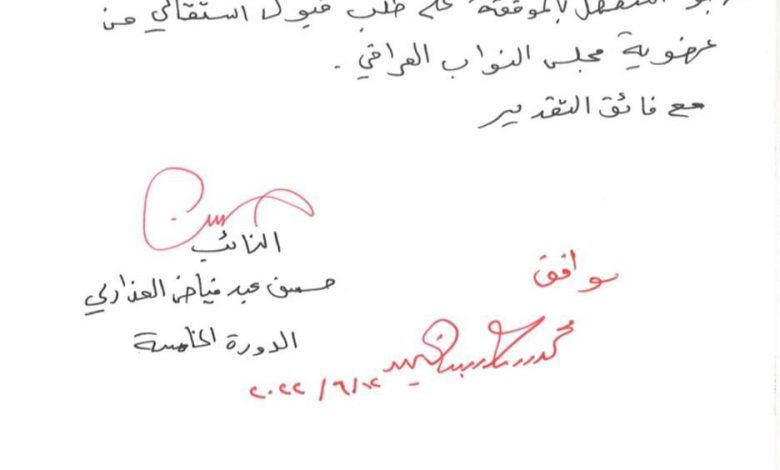 التفضل بالموفقة على طلب قبول استقالتي من
عضوية مجلس النواب العراقي .
مع فائق التقدير
النائب
حسين عبد فياض العذاري
الدورة الخامسة
موافق
محمد
٢٠٢٢/٦/١٢